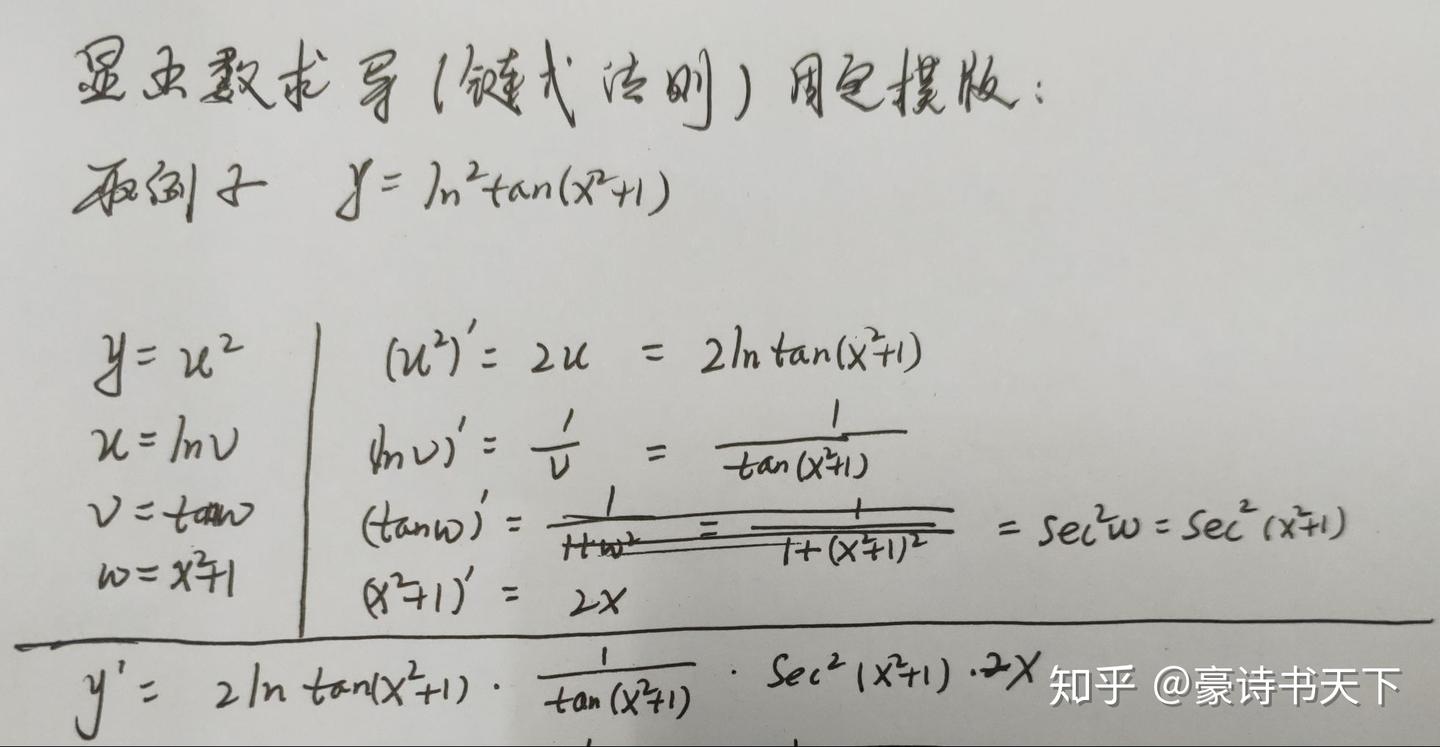 显函数求导(链式法则)固定模版:
取例子 y = ln²tan(x²+1)
y = u² (u²)' = 2u = 2ln tan(x²+1)
u = lnv (lnv)' = 1/v = 1/tan(x²+1)
v = tanw (tanw)' = 1/(1+w²) = 1/(1+(x²+1)²) = sec²w = sec²(x²+1)
w = x²+1 (x²+1)' = 2x
y' = 2ln tan(x²+1) · 1/tan(x²+1) · sec²(x²+1) · 2x
知乎 @豪诗书天下